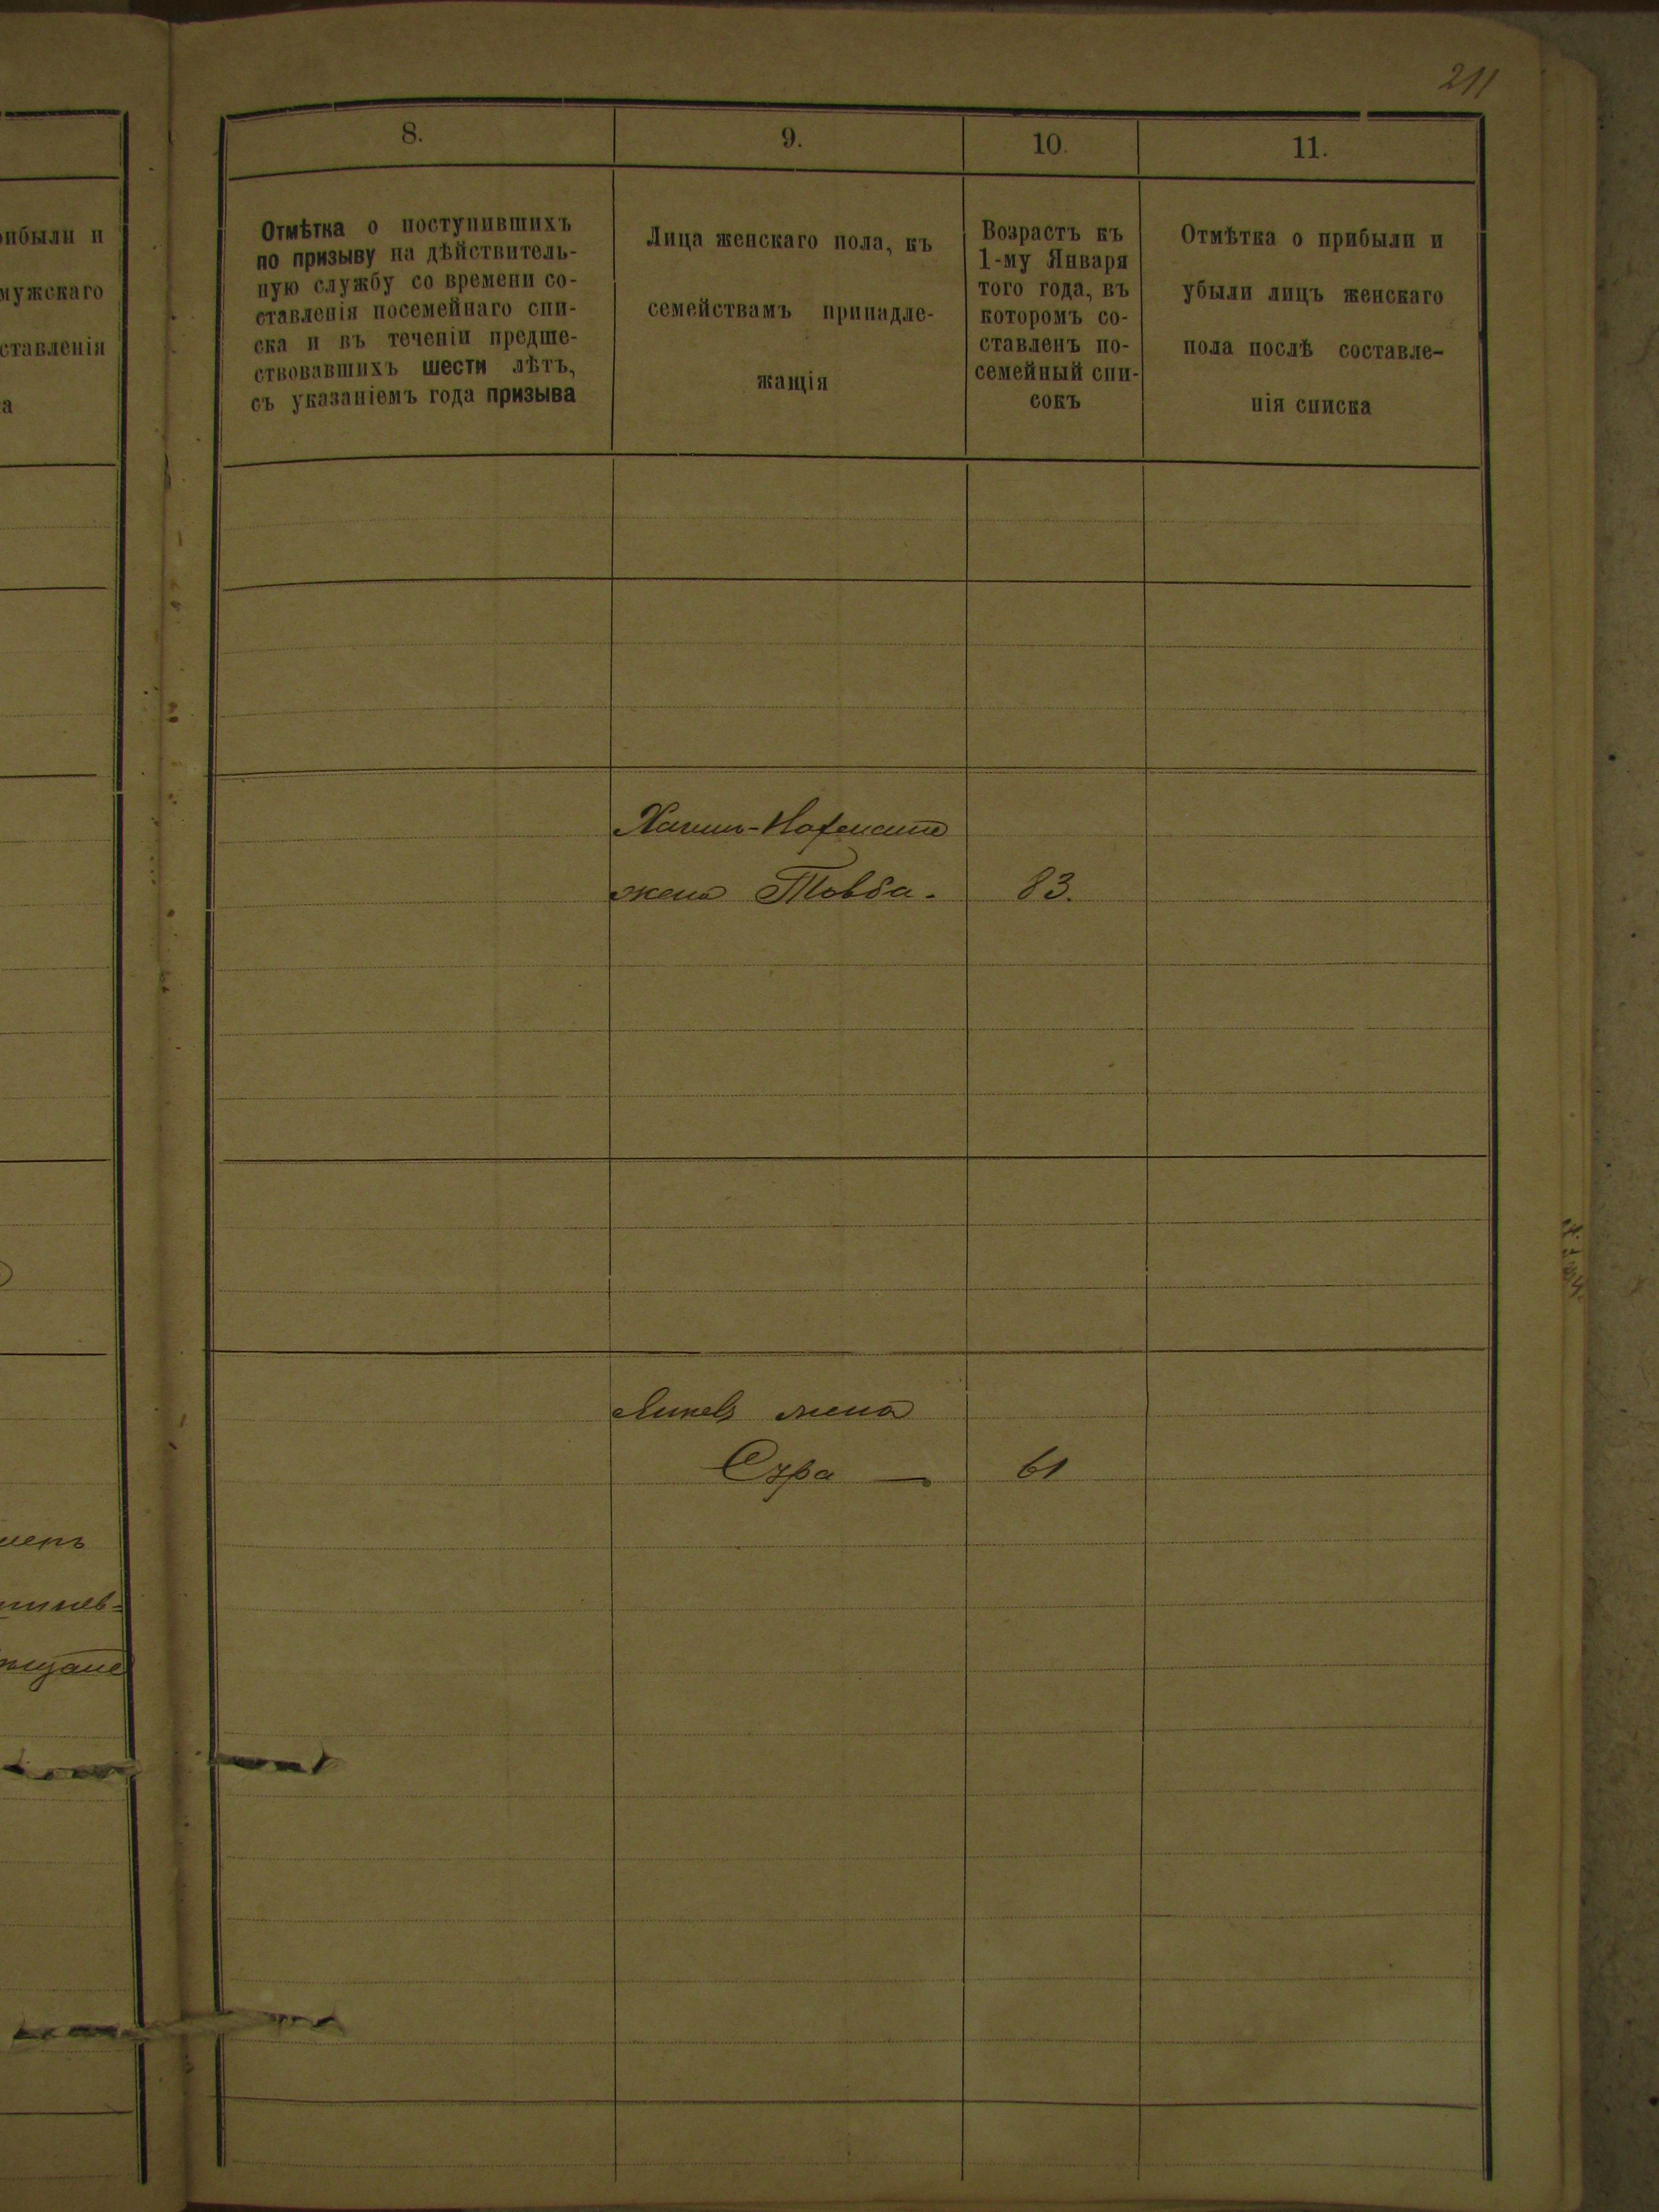 211
8.
9.
10.
11.
Отмѣтка о поступившихъ
по призыву на дѣйствитель-
ную службу со времени со-
ставленія посемейнаго спи-
ска и въ теченіи предше-
ствовавшихъ шести лѣтъ,
съ указаніемъ года призыва
Лица женскаго пола, къ
семействамъ принадле-
жащія
Возрастъ къ
1-му Января
того года, въ
которомъ со-
ставленъ по-
семейный спи-
сокъ
Отмѣтка о прибыли и
убыли лицъ женскаго
пола послѣ составле-
нія списка
жена Товба.
83.
жена
Сура
61
рибыли и
мужскаго
ставленія